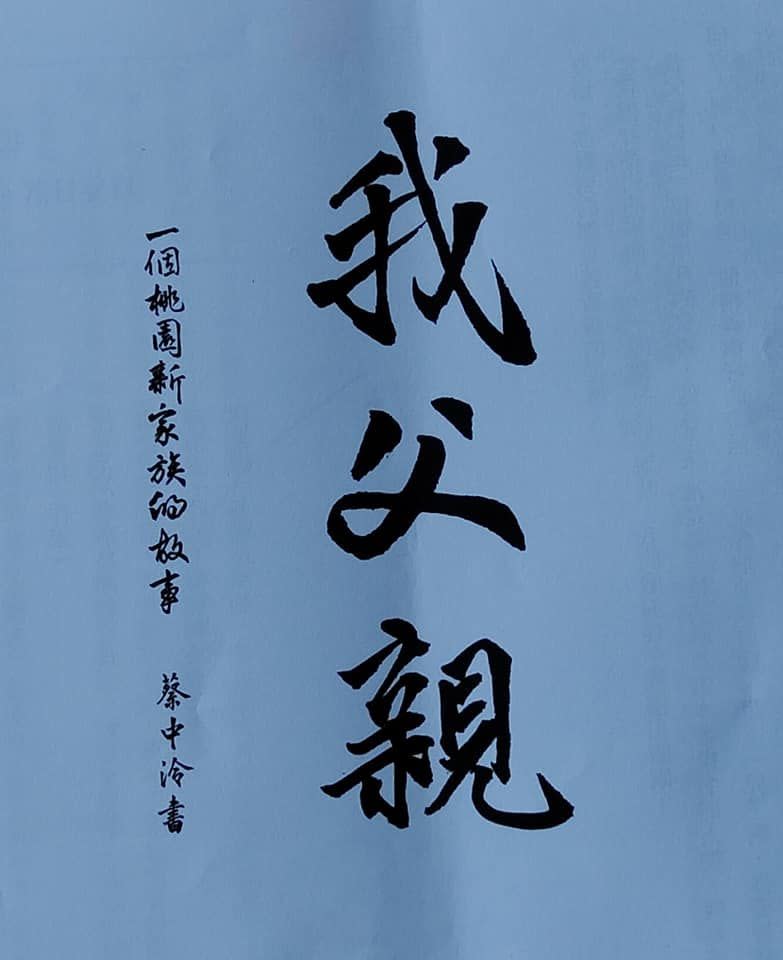 我父親
一個桃園新家族的故事 蔡中泠書